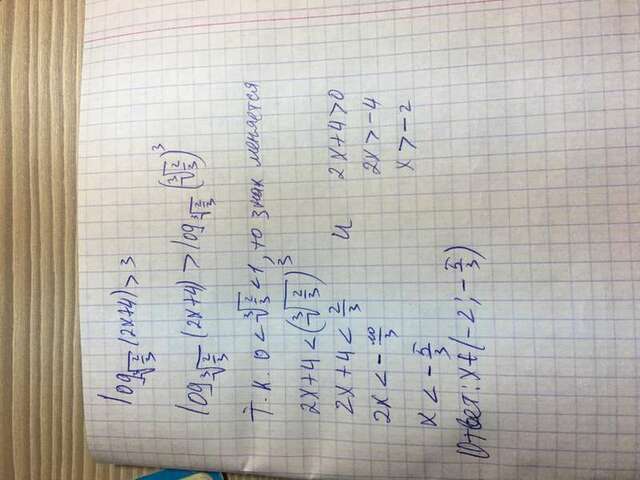 log_∛(2/3) (2x+4) > 3
log_∛(2/3) (2x+4) > log_∛(2/3) (∛(2/3))³
Т.к. 0 < ∛(2/3) < 1, то знак меняется
2x+4 < (∛(2/3))³ и 2x+4 > 0
2x+4 < 2/3 2x > -4
2x < -10/3 x > -2
x < -5/3
Ответ: x ∈ (-2; -5/3)